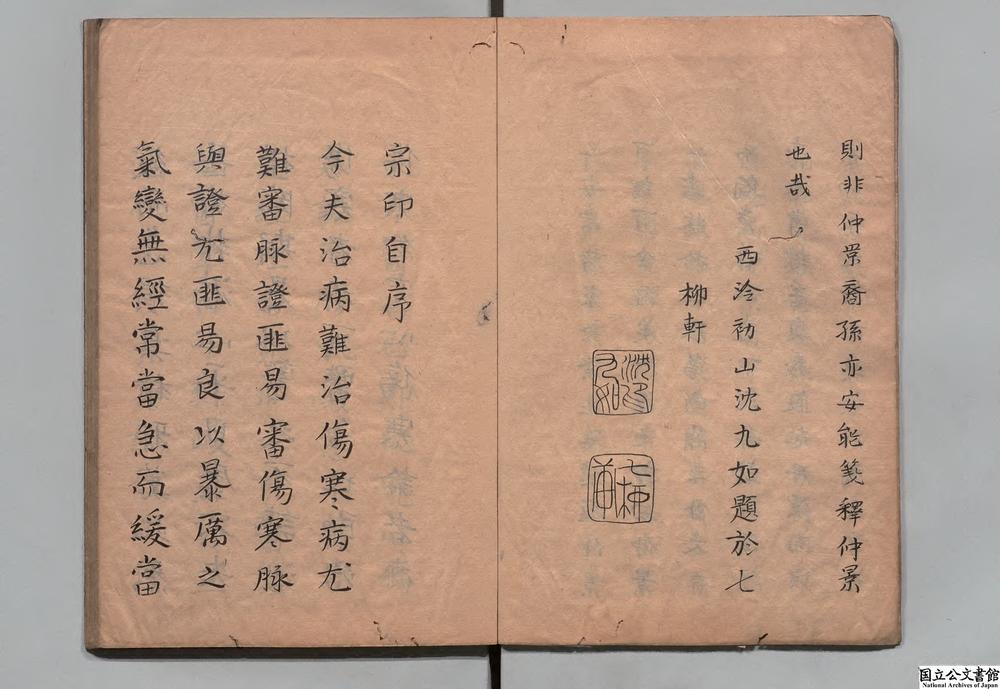 則非仲景裔孫亦安能箋釋仲景
也哉
西泠初山沈九如題於七
柳軒
沈九如
宗印自序
今夫治病難治傷寒病尤
難審脉證匪易審傷寒脉
與證尤匪易良以暴厲之
氣變無經常當急而緩當
国立公文書館
National Archives of Japan